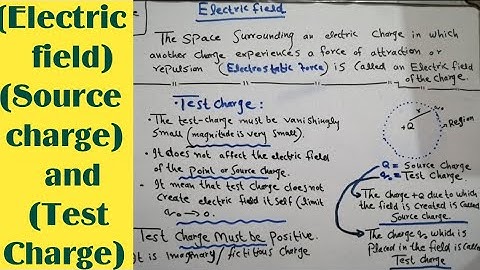 (Electric
field)
(Source
charge)
and
(Test
Charge)
Electric field
The space surrounding an electric charge in which
another charge experiences a force of attraction or
repulsion (Electrostatic Force) is called an Electric field
of the charge.
• Test charge:
• The test-charge must be vanishingly
small (magnitude is very small).
• It does not affect the electric field
of the point or source charge.
• It mean that test charge does not
create electric field it self (limit
q₀ → 0.
Test charge Must be Positive.
It is imaginary / fictitious charge
r
+Q
Region
Q = Source Charge
q₀ = Test Charge
• The charge +Q due to which
the field is created is called
Source charge.
• The charge q₀ which is
placed in the field is called
Test charge